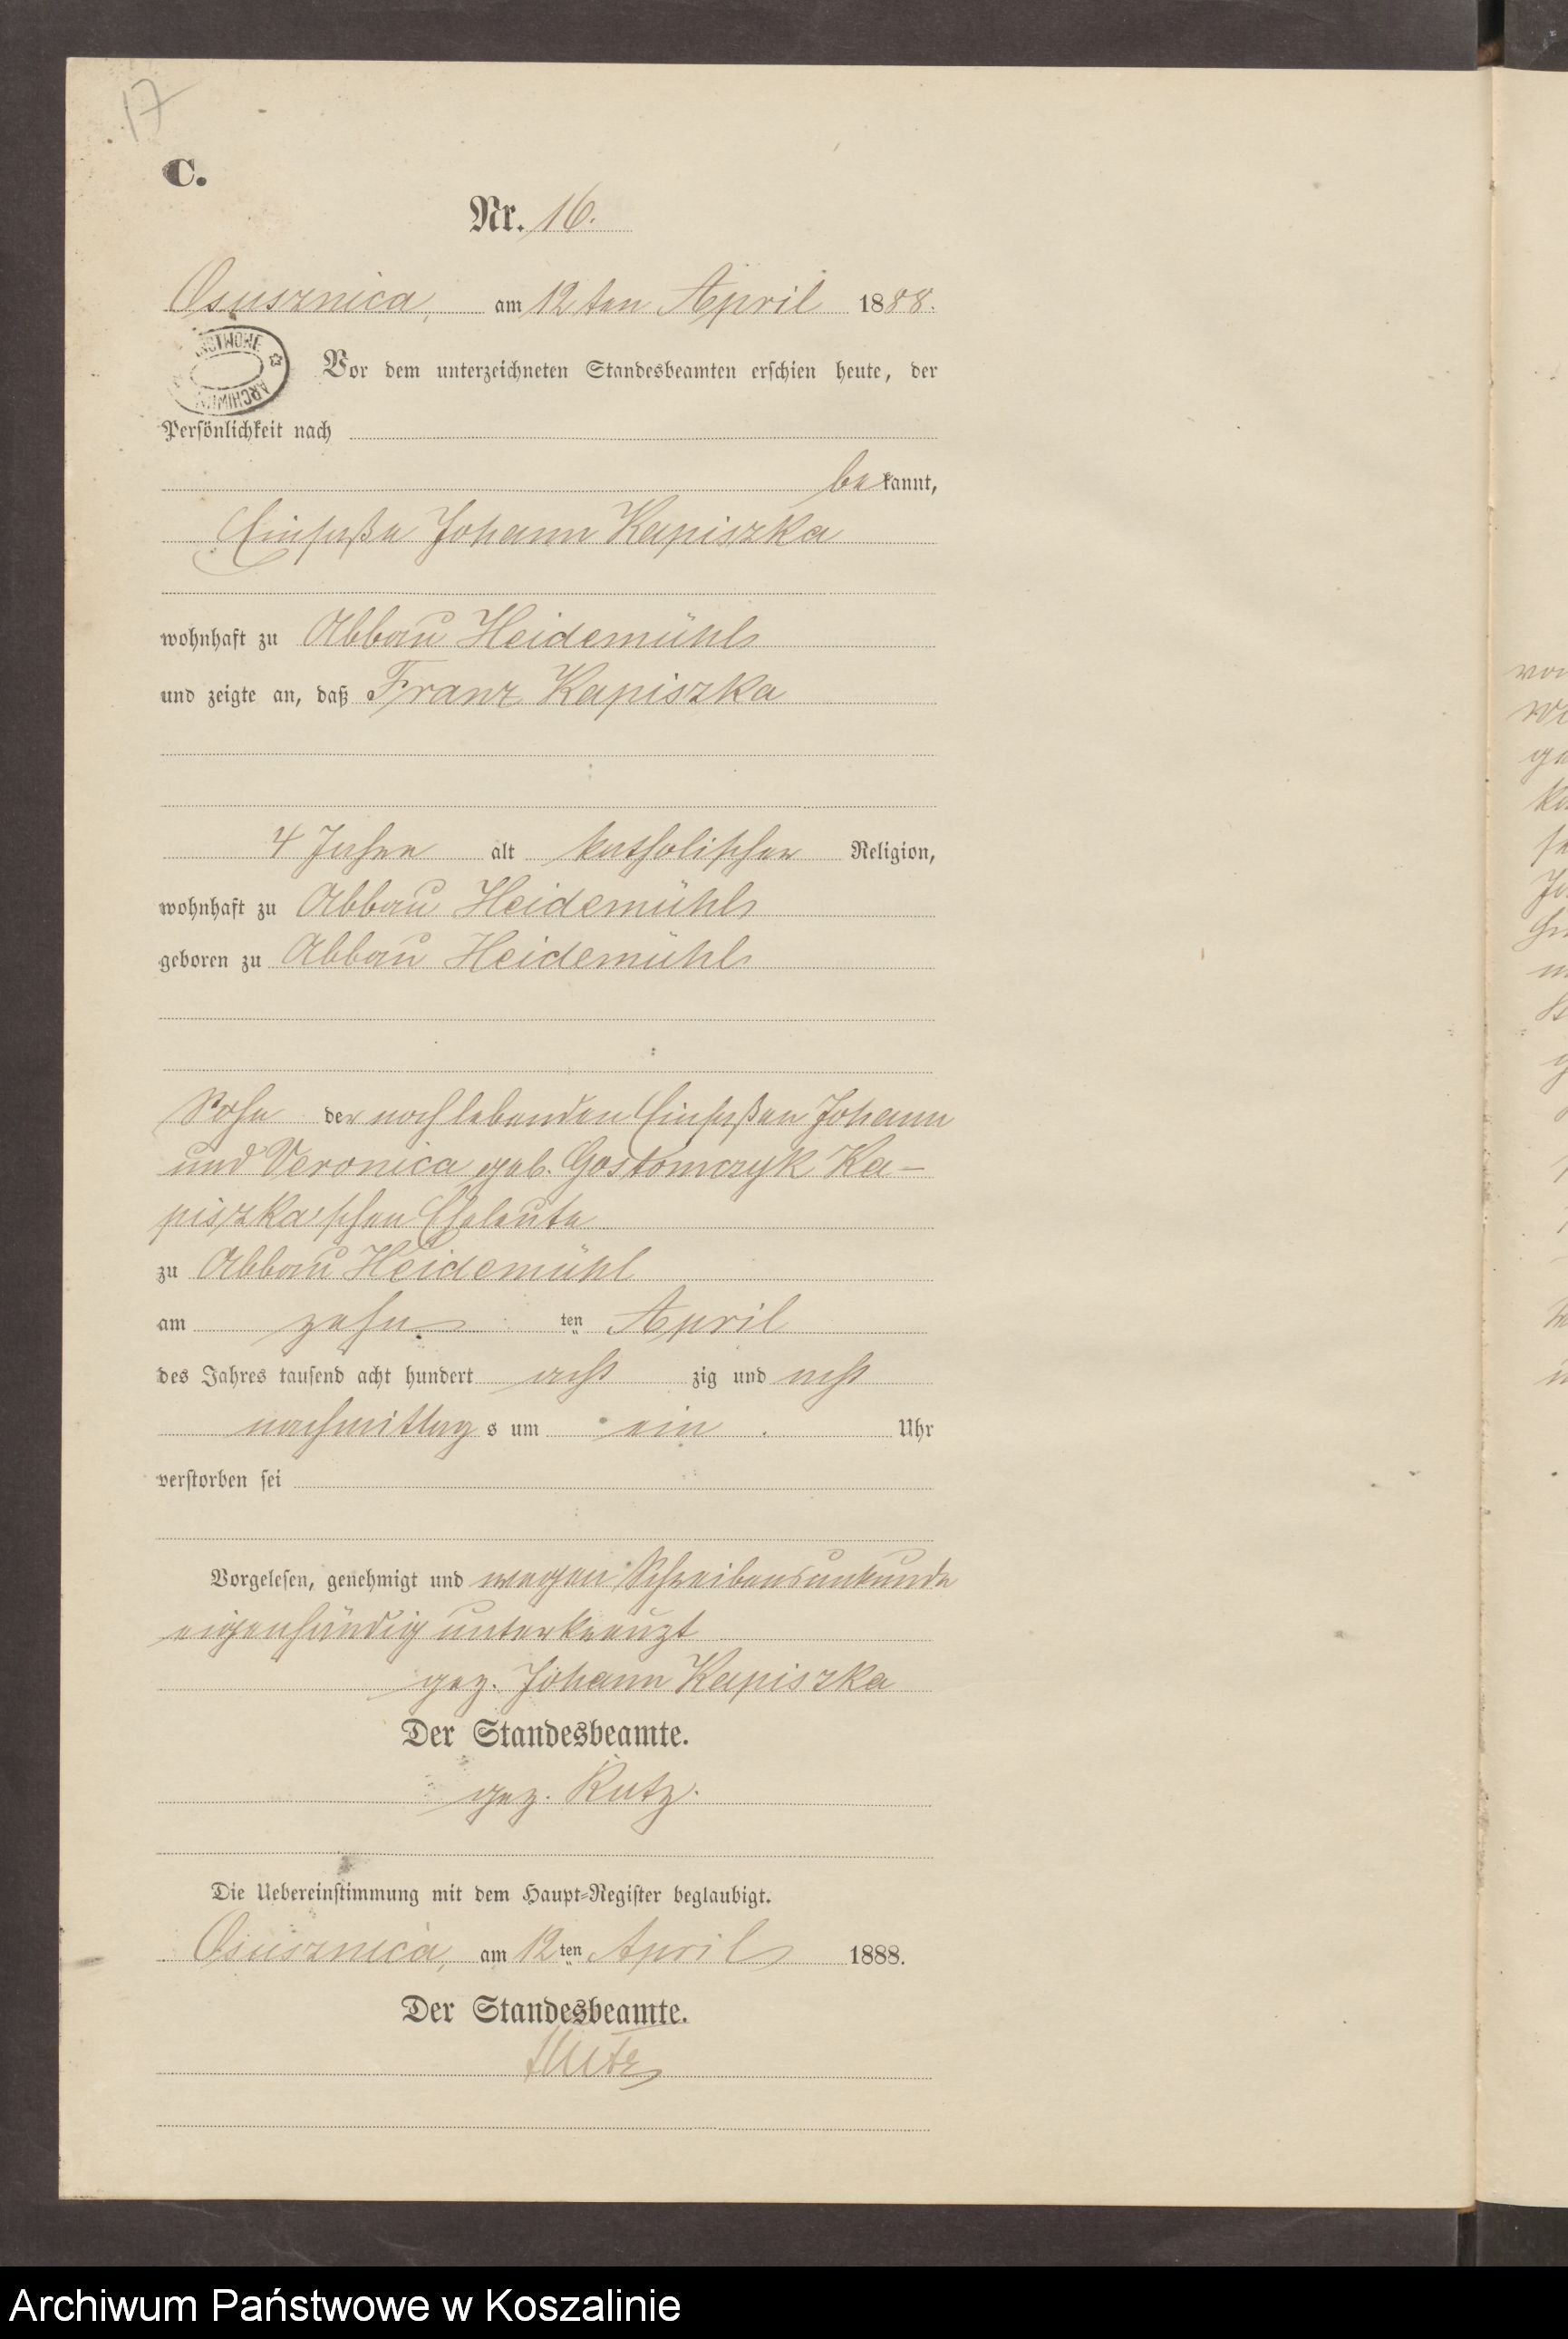 17
C.
Nr. 16.
Osusznica, am 12ten April 1888.
Vor dem unterzeichneten Standesbeamten erschien heute, der
Persönlichkeit nach
bekannt,
Einsaße Johann Kapiszka
wohnhaft zu Abbau Heidemühl
und zeigte an, daß Franz Kapiszka
4 Jahre alt katholischer Religion,
wohnhaft zu Abbau Heidemühl
geboren zu Abbau Heidemühl
Sohn der noch lebenden Einsaßen Johann
und Veronica geb. Gostomczyk Ka-
piszka'schen Eheleute
zu Abbau Heidemühl
am zehn ten April
des Jahres tausend acht hundert acht zig und acht
nachmittags um ein Uhr
verstorben sei
Vorgelesen, genehmigt und wegen Schreibensunkunde
eigenhändig unterkreuzt
gez. Johann Kapiszka
Der Standesbeamte.
gez. Rutz.
Die Uebereinstimmung mit dem Haupt-Register beglaubigt.
Osusznica, am 12ten April 1888.
Der Standesbeamte.
Rutz
Archiwum Państwowe w Koszalinie